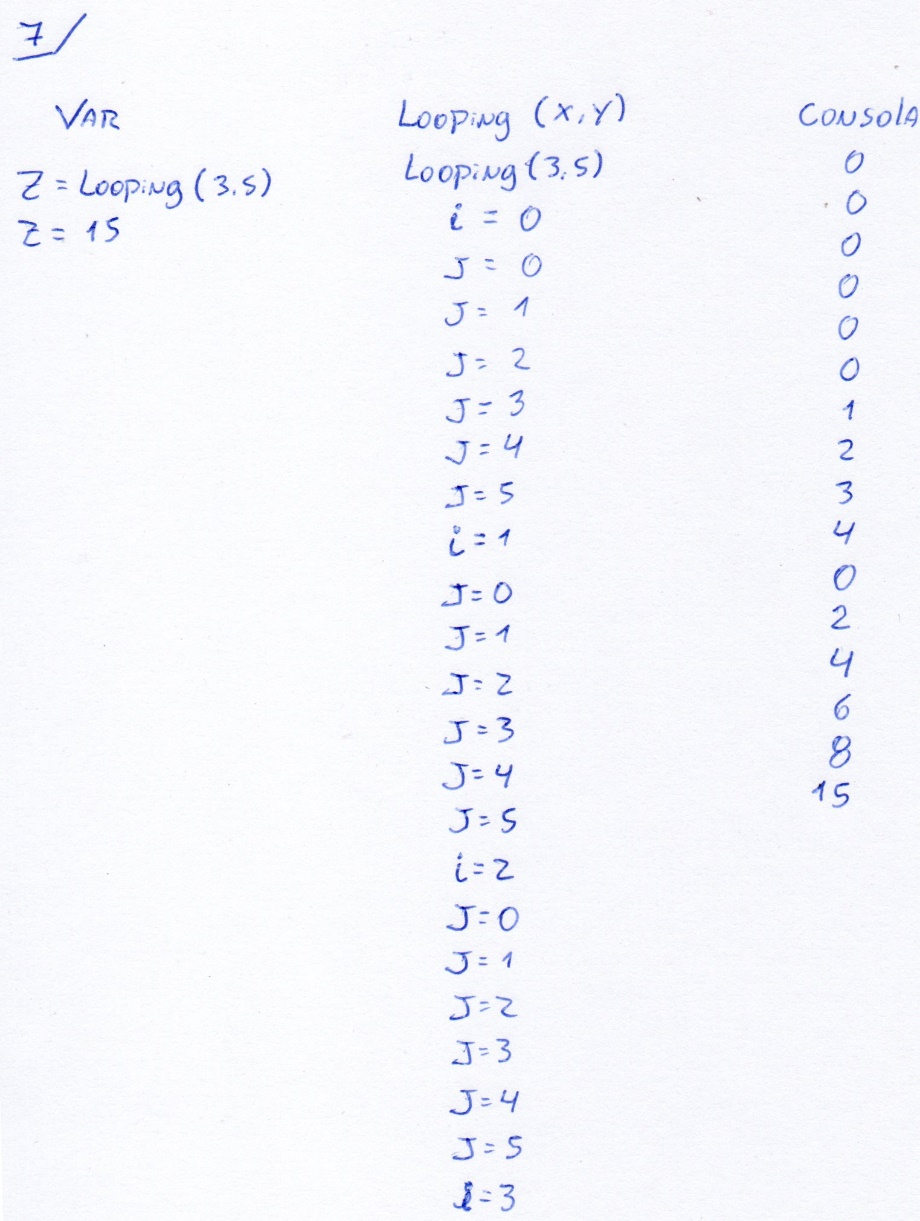 7/
VAR
Z = Looping (3,5)
Z = 15
Looping (X,Y)
Looping (3,5)
i = 0
J = 0
J = 1
J = 2
J = 3
J = 4
J = 5
i = 1
J = 0
J = 1
J = 2
J = 3
J = 4
J = 5
i = 2
J = 0
J = 1
J = 2
J = 3
J = 4
J = 5
i = 3
CONSOlA
0
0
0
0
0
0
1
2
3
4
0
2
4
6
8
15